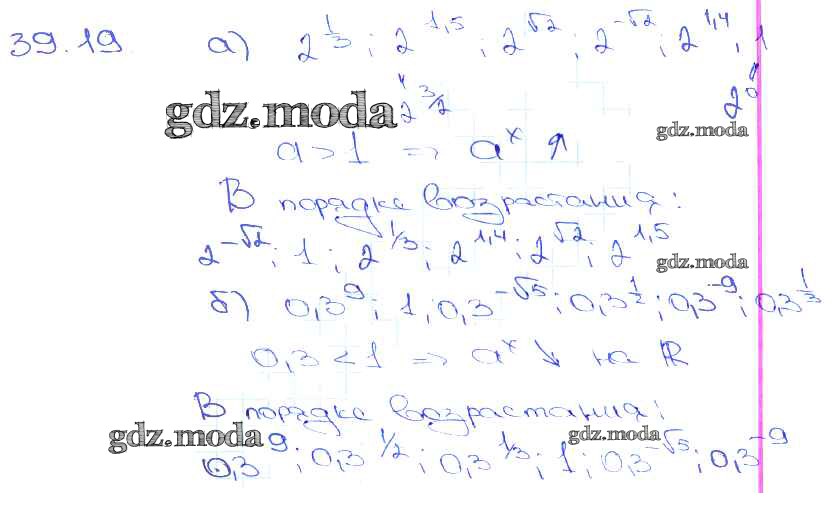 39.19 а) 2^{1/3}; 2^{1,5}; 2^{√2}; 2^{-√2}; 2^{1,4}, 1
gdz.moda 2^{3/2} 2^0
gdz.moda
a > 1 ⇒ a^x ↑
В порядке возрастания:
2^{-√2}; 1; 2^{1/3}; 2^{1,4}; 2^{√2}; 2^{1,5}
gdz.moda
б) 0,3^9; 1; 0,3^{-√5}; 0,3^{1/2}; 0,3^{-9}; 0,3^{1/3}
0,3 < 1 ⇒ a^x ↘ на R
В порядке возрастания:
gdz.moda gdz.moda
0,3^9; 0,3^{1/2}; 0,3^{1/3}; 1; 0,3^{-√5}; 0,3^{-9}